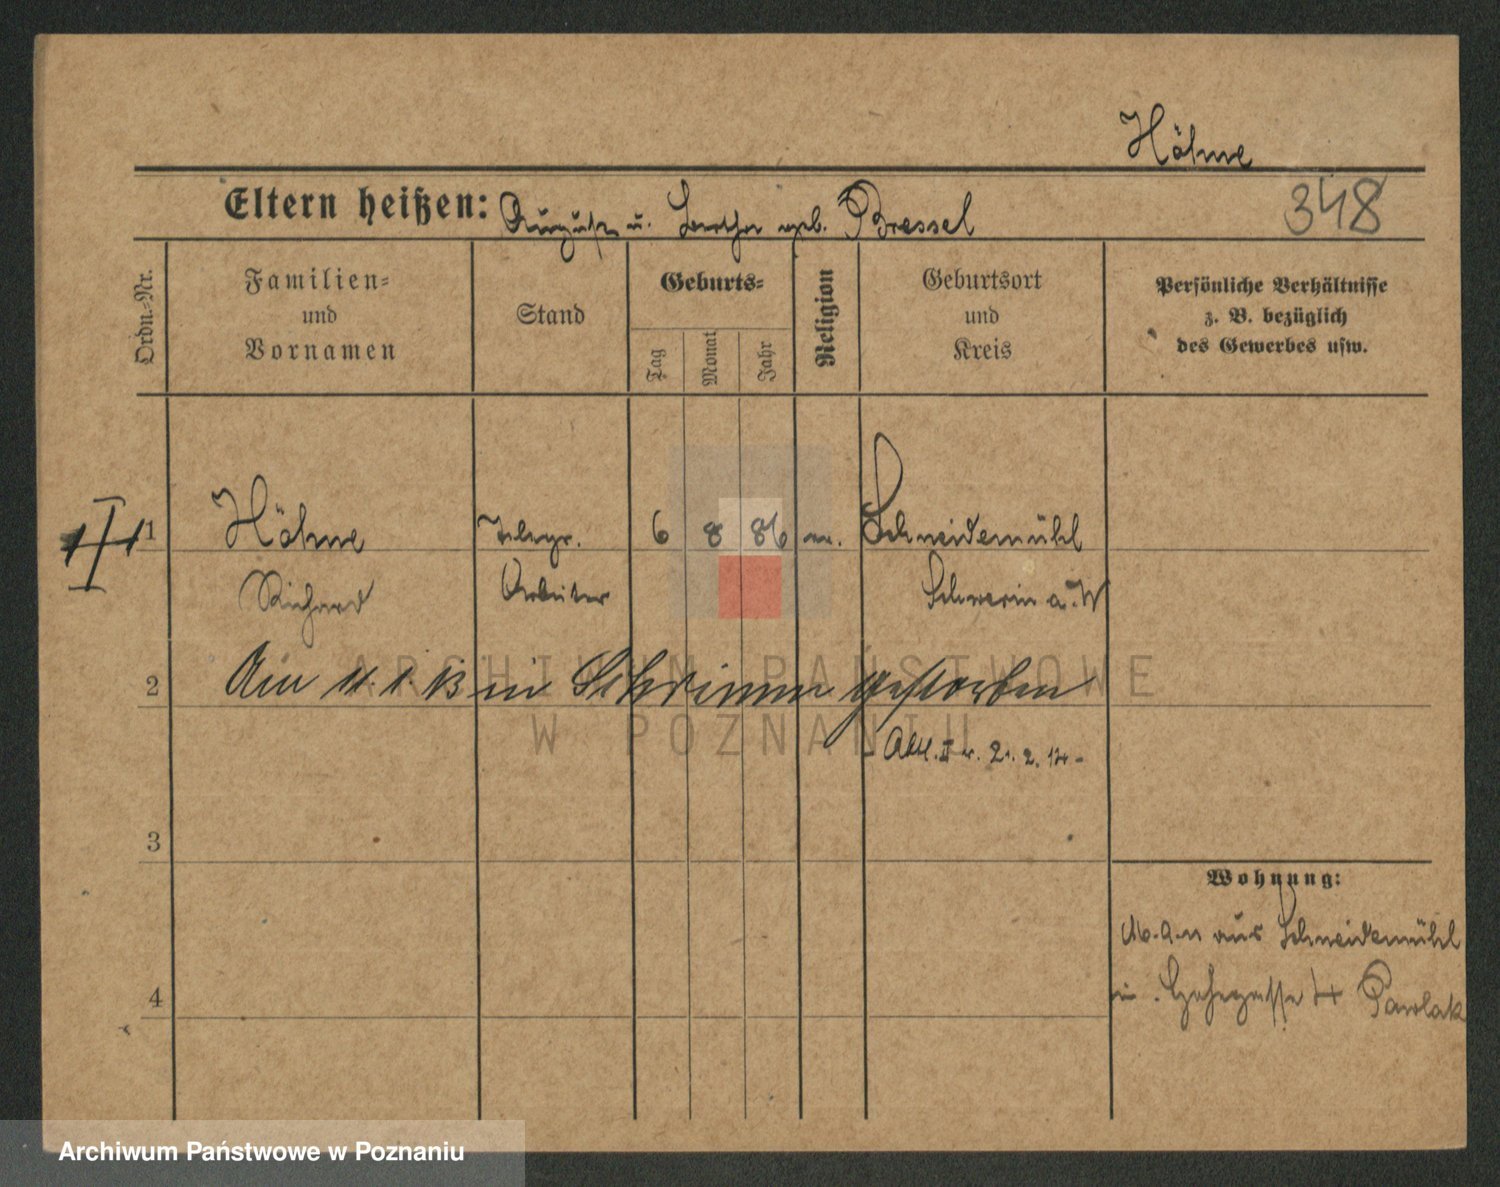 Höhne
Eltern heißen: August u. Bertha geb. Bressel
348
Ordn.-Nr.
Familien-
und
Vornamen
Stand
Geburts-
Tag
Monat
Jahr
Religion
Geburtsort
und
Kreis
Persönliche Verhältnisse
z. B. bezüglich
des Gewerbes usw.
1 Höhne Telegr. 6 8 86 Schneidemühl
Richard Arbeiter Schwerin a. W
2 Am 11. 1. 13 in Schrimm gestorben
- Abt. II v. 21. 2. 14 -
3
Wohnung:
aus Schneidemühl
4 Pawlak
ARCHIWUM PAŃSTWOWE
W POZNANIU
Archiwum Państwowe w Poznaniu